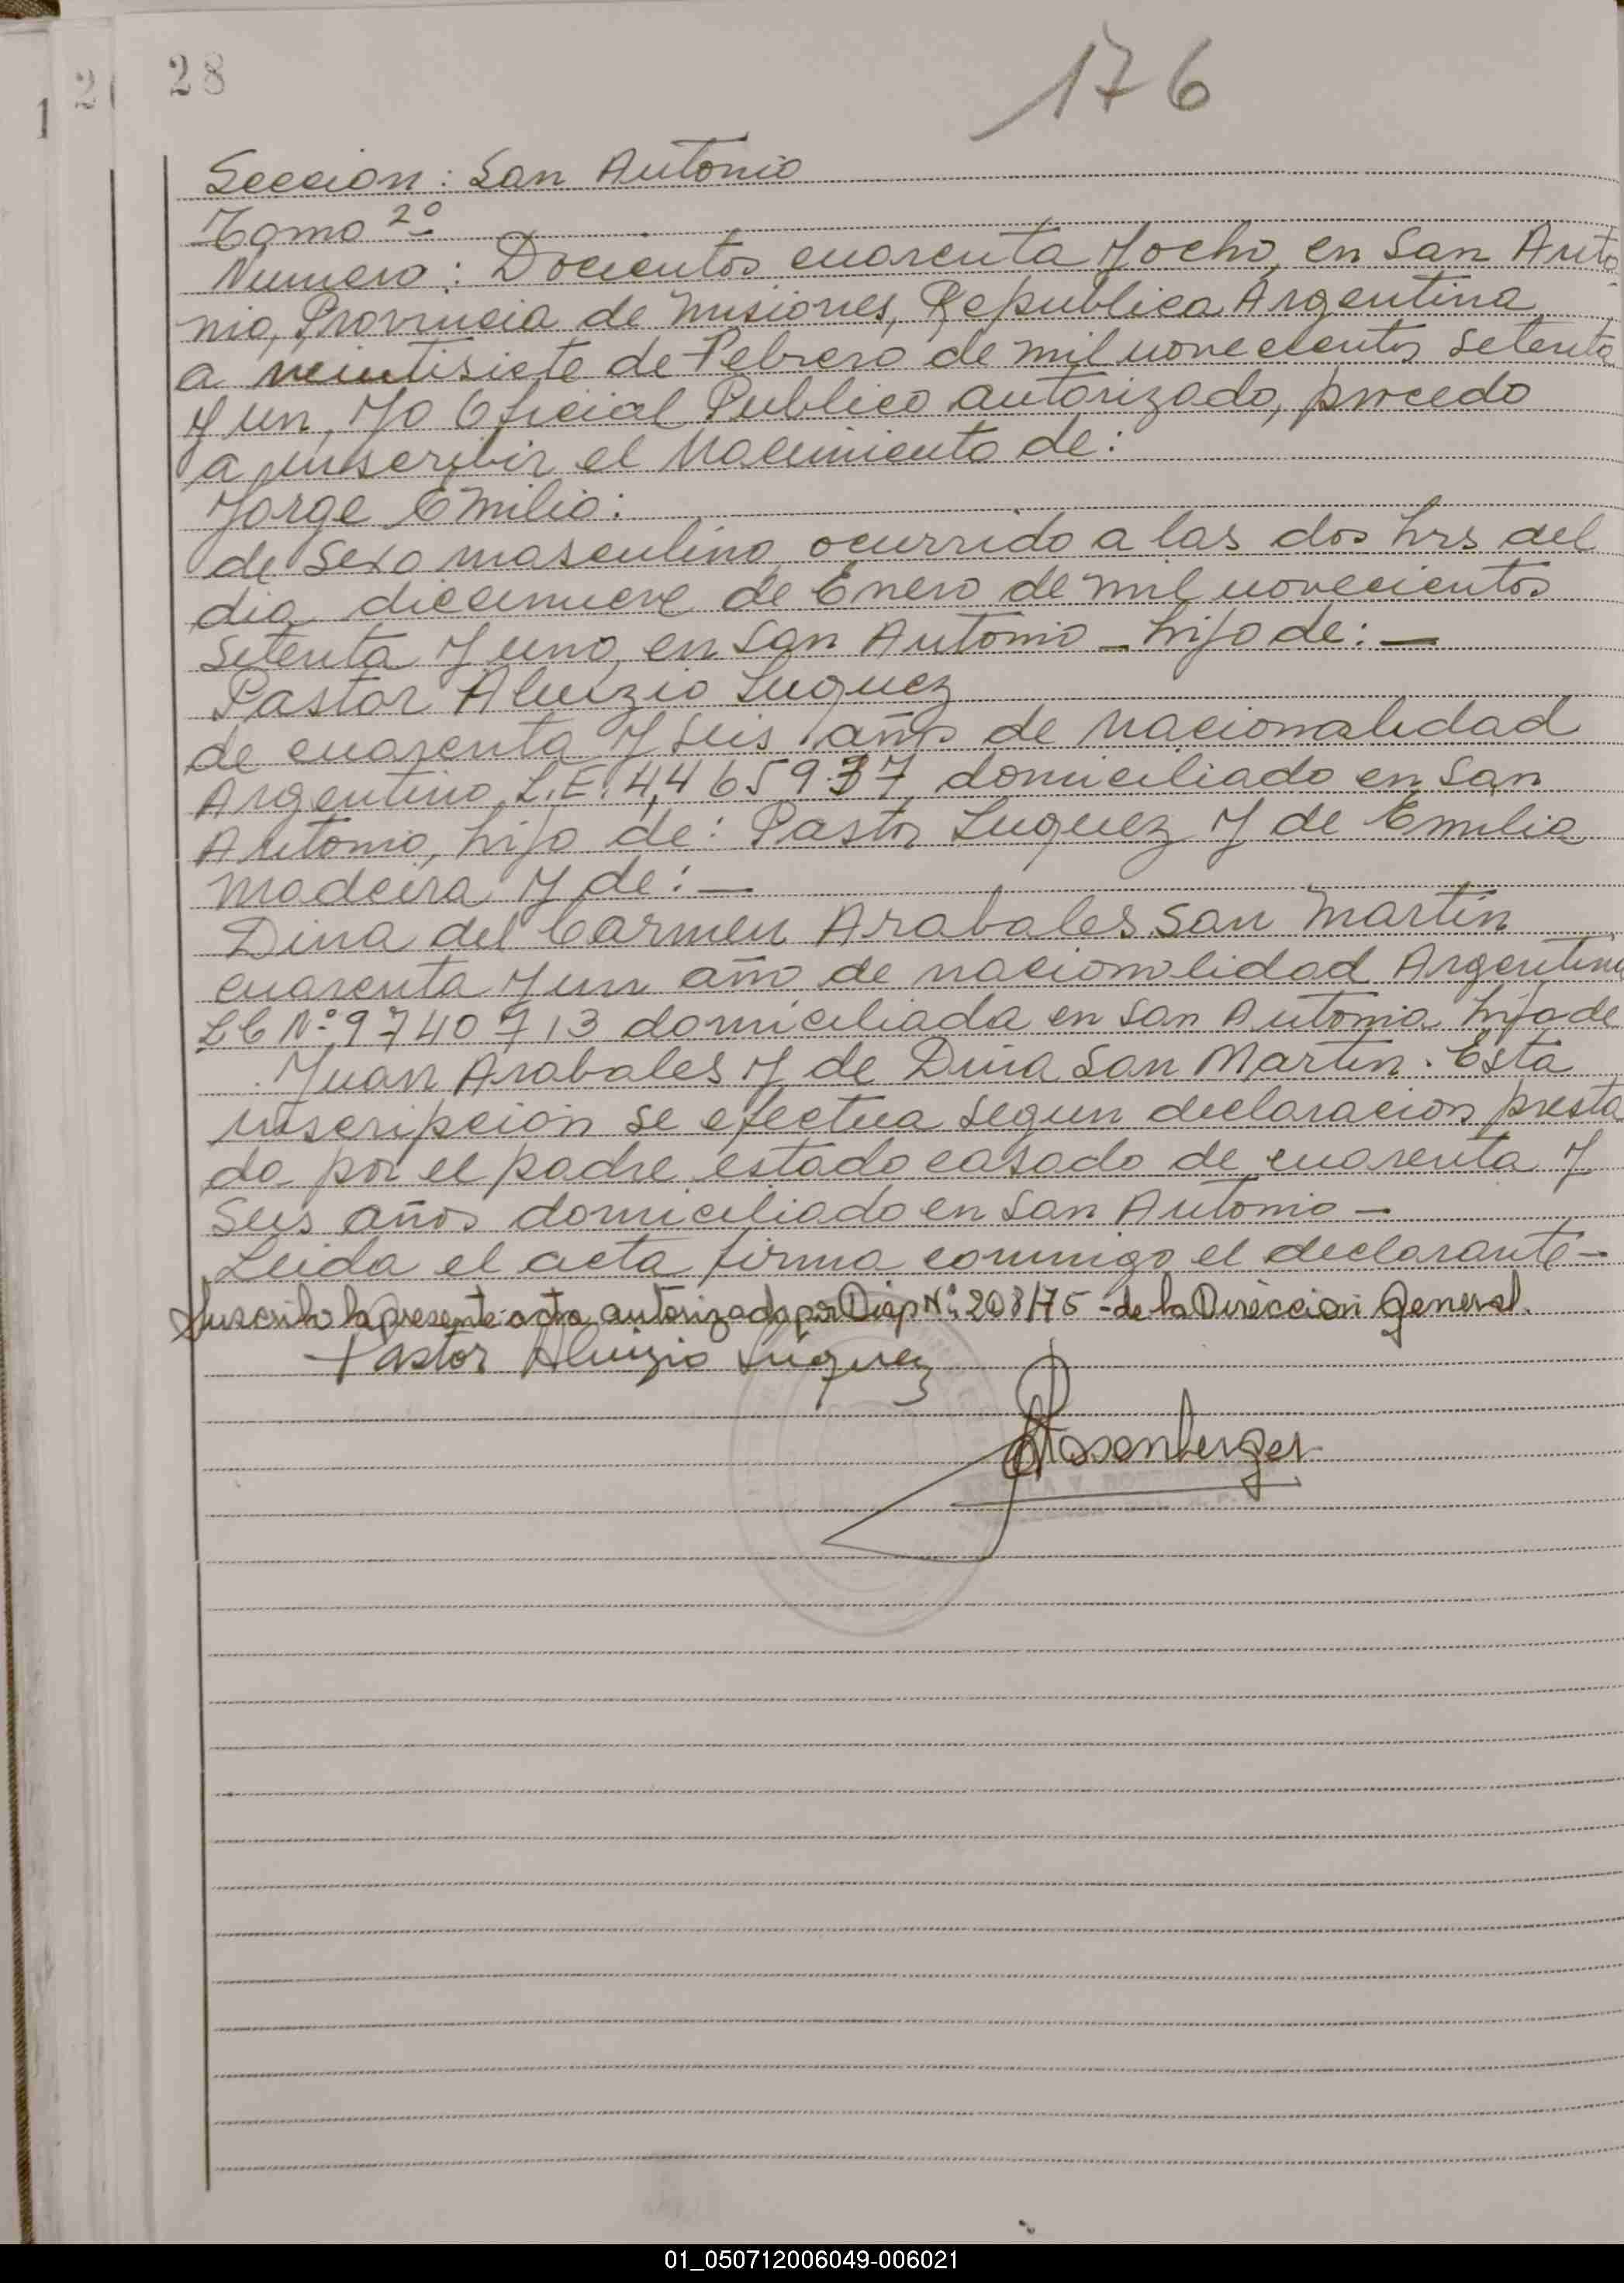 28
176
Seccion: San Antonio
Tomo 2º
Numero: Docientos cuarenta y ocho, en San Anto
nio, Provincia de Misiones, Republica Argentina
a veintisiete de Febrero de mil novecientos setenta
y un, yo Oficial Publico autorizado, procedo
a inscribir el Nacimiento de:
Jorge Emilio:
de Sexo masculino, ocurrido a las dos hrs del
dia diecinueve de Enero de mil novecientos
setenta y uno, en San Antonio - hijo de: -
Pastor Aluizio Luquez
de cuarenta y seis años de nacionalidad
Argentino, L.E. 4,465937, domiciliado en San
Antonio, hijo de: Pastor Luquez y de Emilia
Madeira y de: -
Dina del Carmen Arabales San Martin
cuarenta y un año de nacionalidad Argentina
LC Nº 9740713 domiciliada en San Antonio hija de
Juan Arabales y de Dina San Martin. Esta
inscripcion se efectua segun declaracion presta
da por el padre estado casado de cuarenta y
seis años domiciliado en San Antonio -
Leida el acta firma conmigo el declarante -
Suscribo la presente acta autorizada por Disp Nº 208/75 - de la Direccion General.
Pastor Aluizio Luquez
Rosenberger
01_050712006049-006021